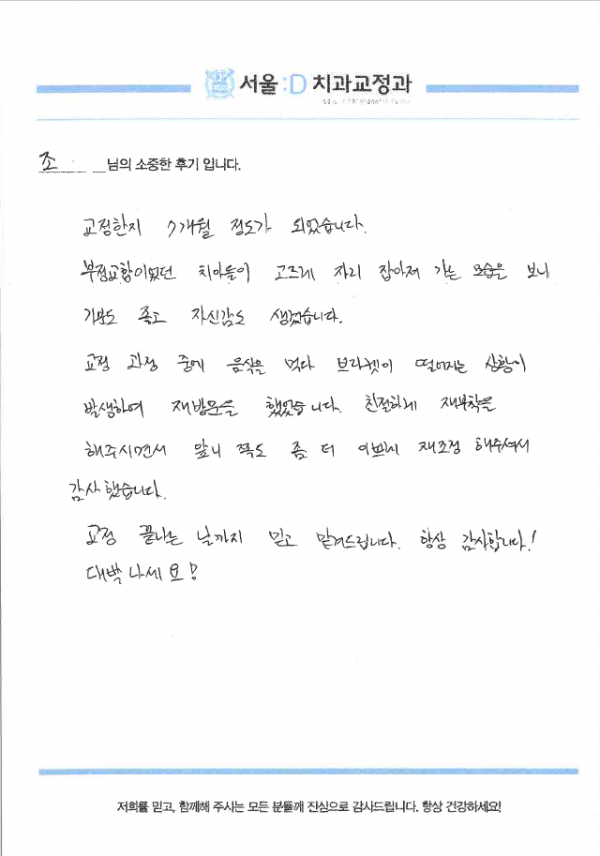 서울:D 치과교정과
조 님의 소중한 후기 입니다.
교정한지 7개월 정도가 되었습니다.
부정교합이었던 치아들이 고르게 자리 잡아져 가는 모습을 보니
기분도 좋고 자신감도 생겼습니다.
교정 과정 중에 음식을 먹다 브라켓이 떨어지는 상황이
발생하여 재방문을 했었습니다. 친절하게 재부착을
해주시면서 앞니 쪽도 좀 더 이쁘게 재조정 해주셔서
감사했습니다.
교정 끝나는 날까지 믿고 맡겨드립니다. 항상 감사합니다!
대박나세요!
저희를 믿고, 함께해 주시는 모든 분들께 진심으로 감사드립니다. 항상 건강하세요!